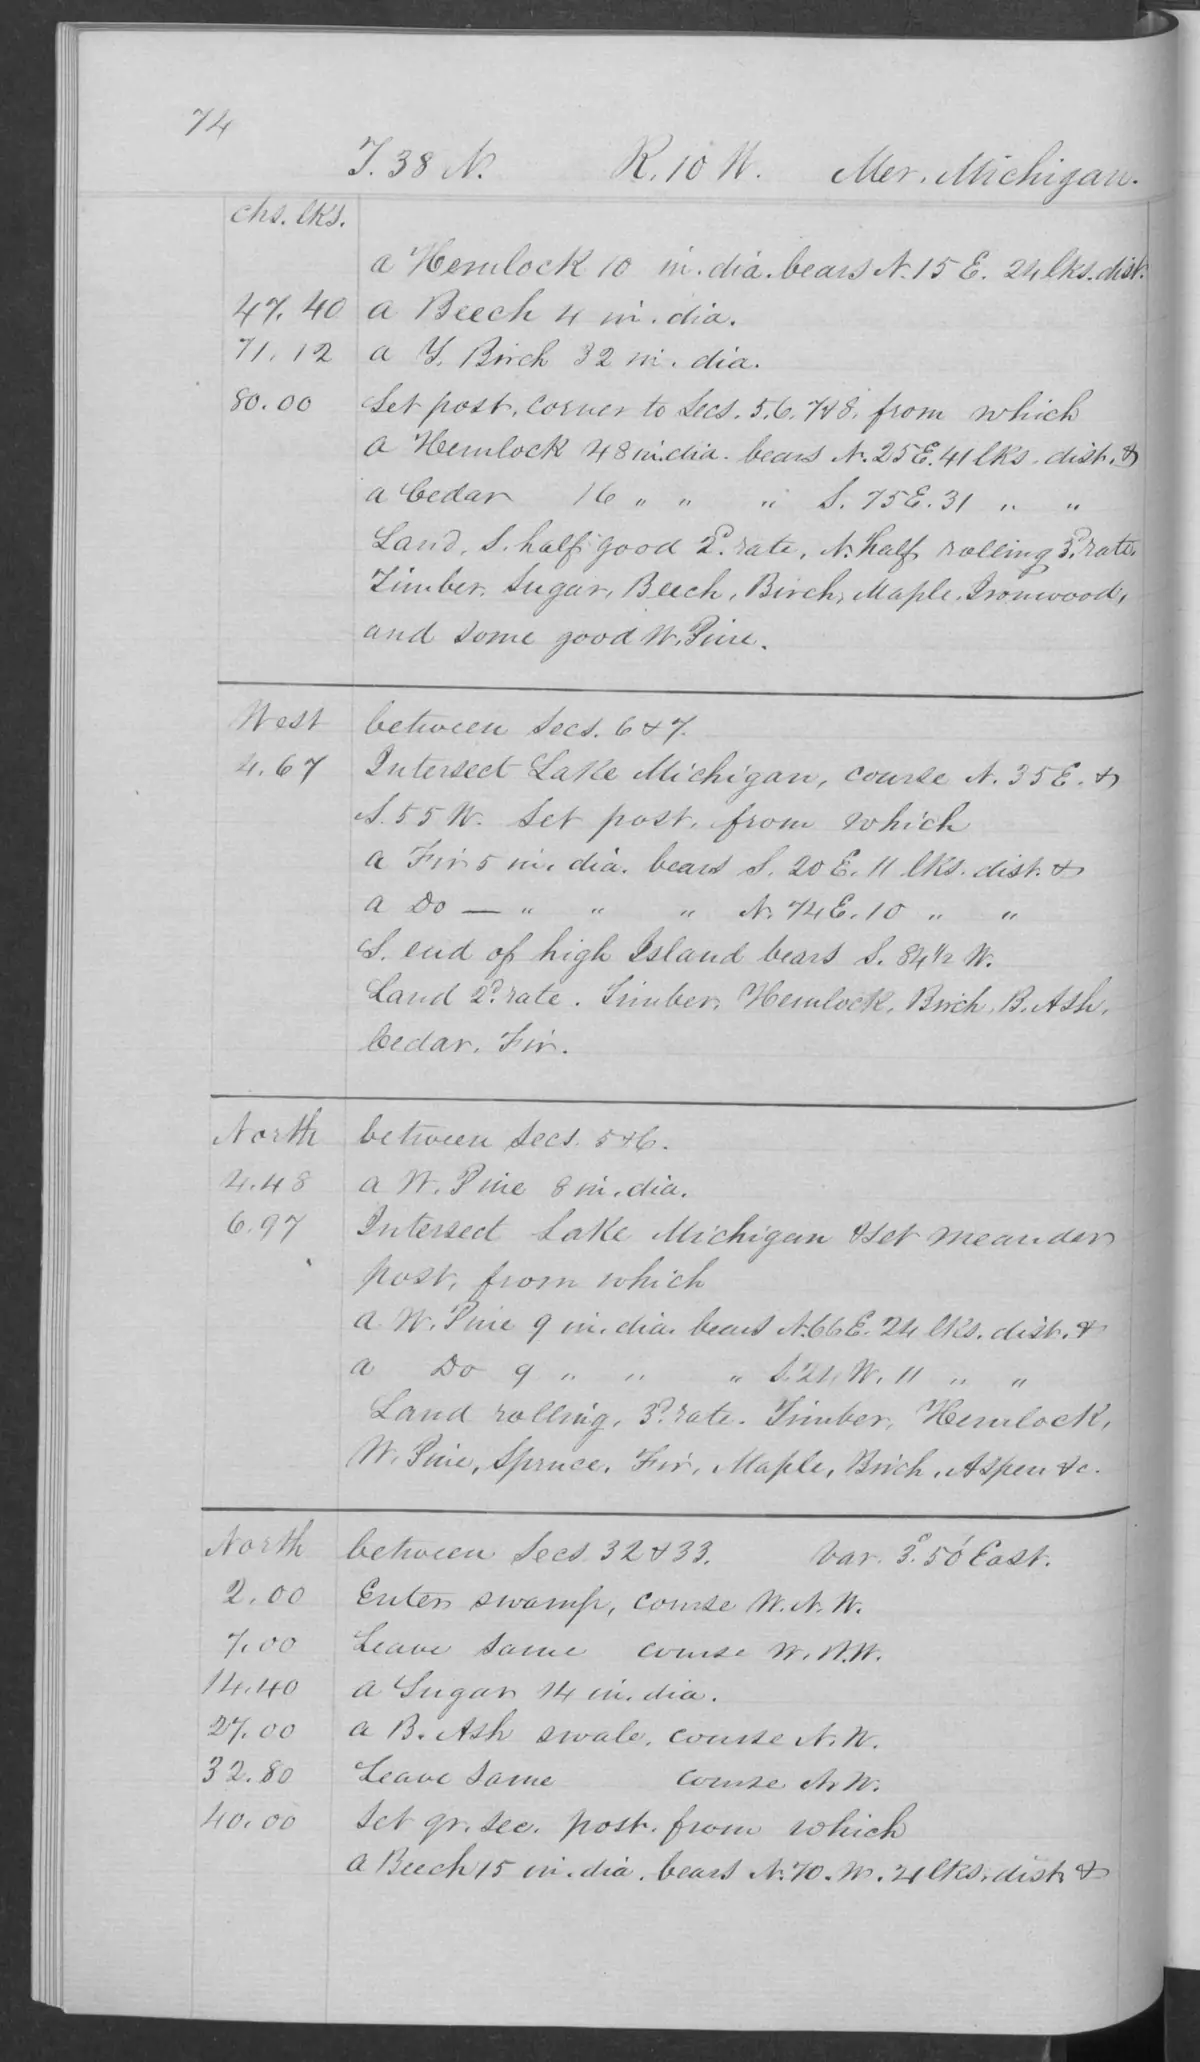 74
T. 38 N. R. 10 W. Mer. Michigan.
chs. lks.
a Hemlock 10 in. dia. bears N. 15 E. 24 lks. dist.
47.40 a Beech 4 in. dia.
71.12 a Y. Birch 32 in. dia.
80.00 Set post, corner to Secs. 5. 6. 7 & 8. from which
a Hemlock 48 in. dia. bears N. 25 E. 41 lks. dist. &
a Cedar 16 " " " S. 75 E. 31 " "
Land, S. half good 2d. rate, N. half rolling 3d. rate.
Timber, Sugar, Beech, Birch, Maple, Ironwood,
and some good W. Pine.
West between Secs. 6 & 7.
4.67 Intersect Lake Michigan, course N. 35 E. &
S. 55 W. Set post, from which
a Fir 5 in. dia. bears S. 20 E. 11 lks. dist. &
a Do — " " " N. 74 E. 10 " "
S. end of high Island bears S. 84 1/2 W.
Land 2d. rate. Timber, Hemlock, Birch, B. Ash,
Cedar, Fir.
North between Secs. 5 & 6.
4.48 a W. Pine 8 in. dia.
6.97 Intersect Lake Michigan & set meander
post, from which
a W. Pine 9 in. dia. bears N. 66 E. 24 lks. dist. &
a Do 9 " " " S. 24 W. 11 " "
Land rolling, 3d. rate. Timber, Hemlock,
W. Pine, Spruce, Fir, Maple, Birch, Aspen &c.
North between Secs. 32 & 33. Var. 3°. 50' East.
2.00 Enter swamp, course W. N. W.
7.00 Leave same course W. N. W.
14.40 a Sugar 14 in. dia.
27.00 a B. Ash swale, course N. W.
32.80 Leave same course N. W.
40.00 Set qr. sec. post. from which
a Beech 15 in. dia. bears N. 70. W. 21 lks. dist. &